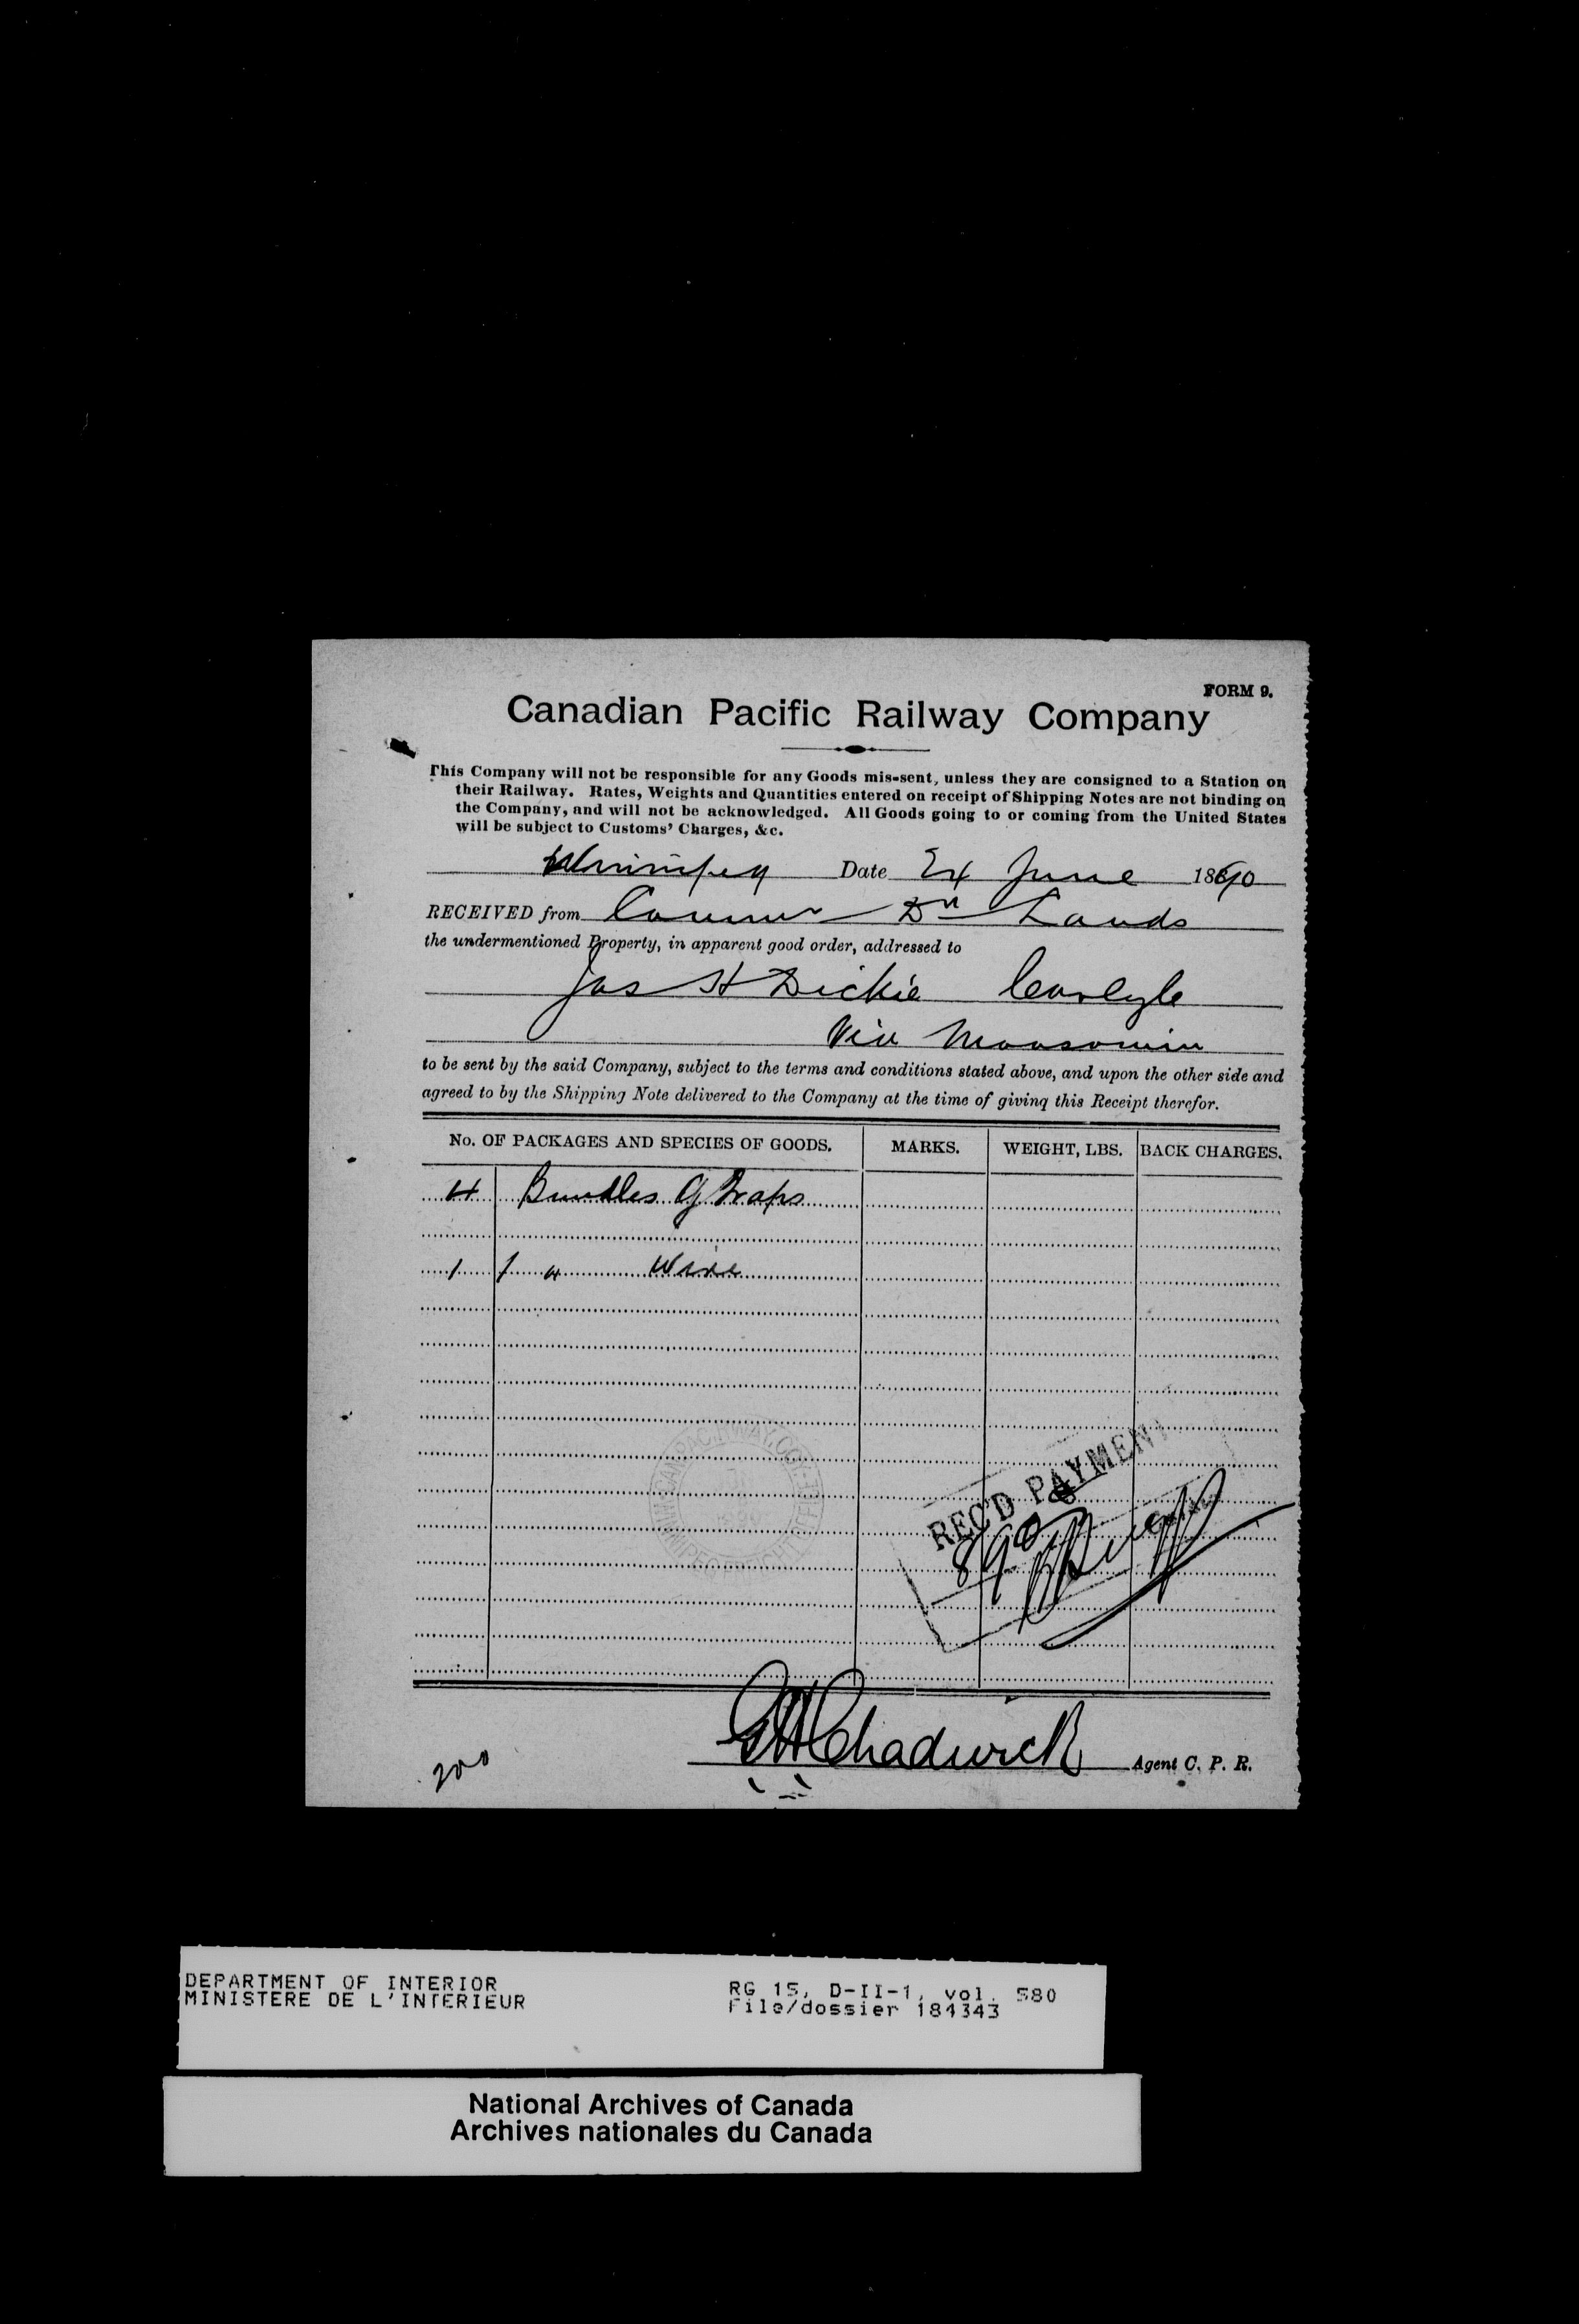 FORM 9.
Canadian Pacific Railway Company
This Company will not be responsible for any Goods mis-sent, unless they are consigned to a Station on
their Railway. Rates, Weights and Quantities entered on receipt of Shipping Notes are not binding on
the Company, and will not be acknowledged. All Goods going to or coming from the United States
will be subject to Customs' Charges, &c.
Winnipeg Date 24 June 1890
RECEIVED from Commr Dn Lands
the undermentioned Property, in apparent good order, addressed to
Jas H Dickie Carlyle
Via Moosomin
to be sent by the said Company, subject to the terms and conditions stated above, and upon the other side and
agreed to by the Shipping Note delivered to the Company at the time of giving this Receipt therefor.
No. OF PACKAGES AND SPECIES OF GOODS. MARKS. WEIGHT, LBS. BACK CHARGES.
4 Bundles G Traps
1 1 " Wire
REC'D PAYMENT
890
G H Chadwick Agent C. P. R.
200
DEPARTMENT OF INTERIOR
MINISTERE DE L'INTERIEUR
RG 15, D-II-1, vol. 580
File/dossier 184343
National Archives of Canada
Archives nationales du Canada